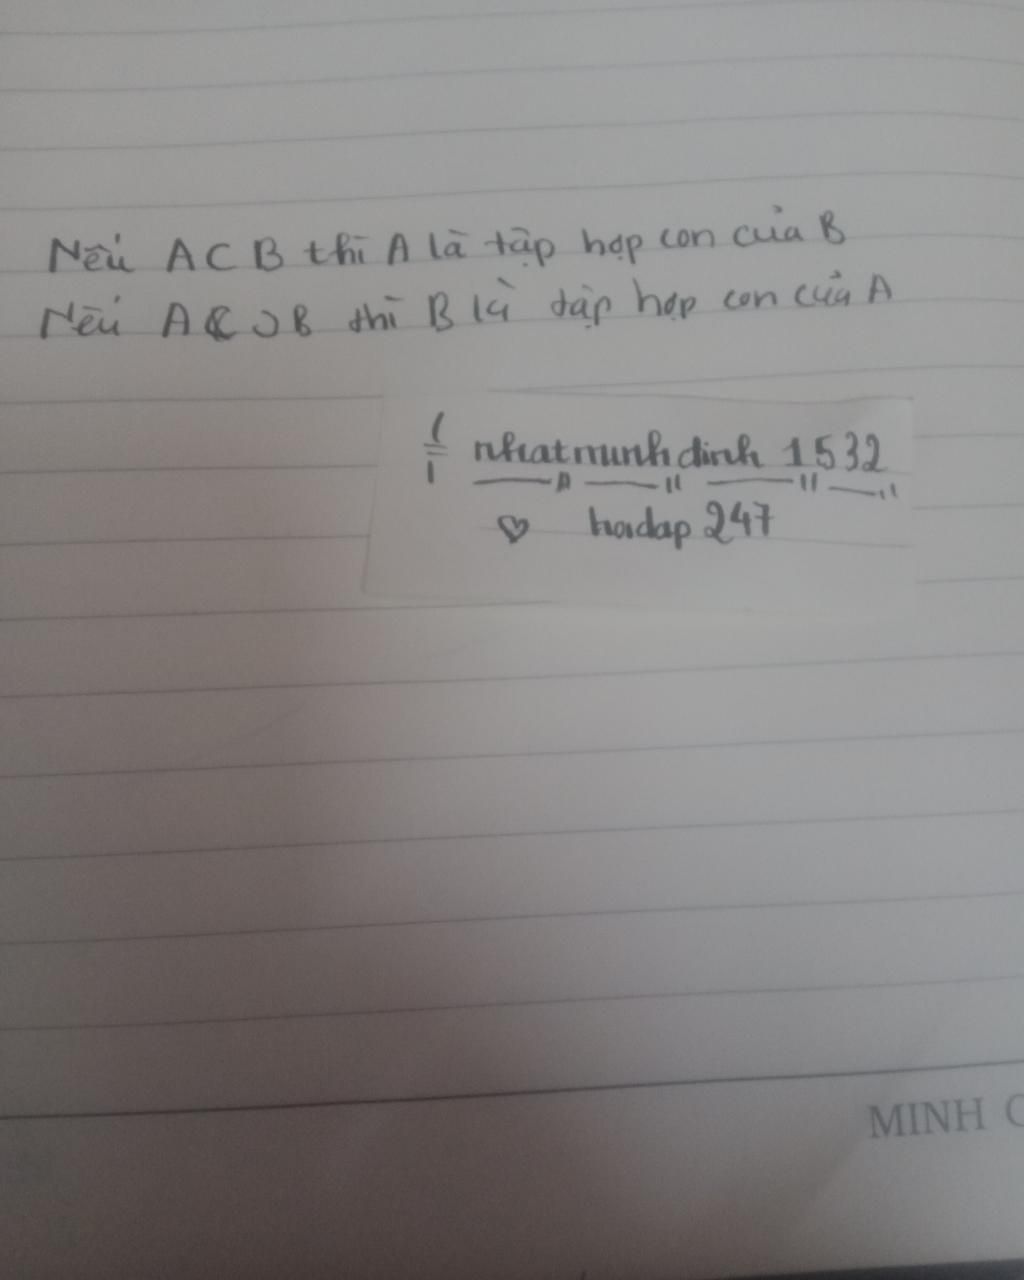 Nếu A ⊂ B thì A là tập hợp con của B
Nếu A ⊃ B thì B là tập hợp con của A
nhatminhdinh 1532
♡ hoidap 247
MINH C